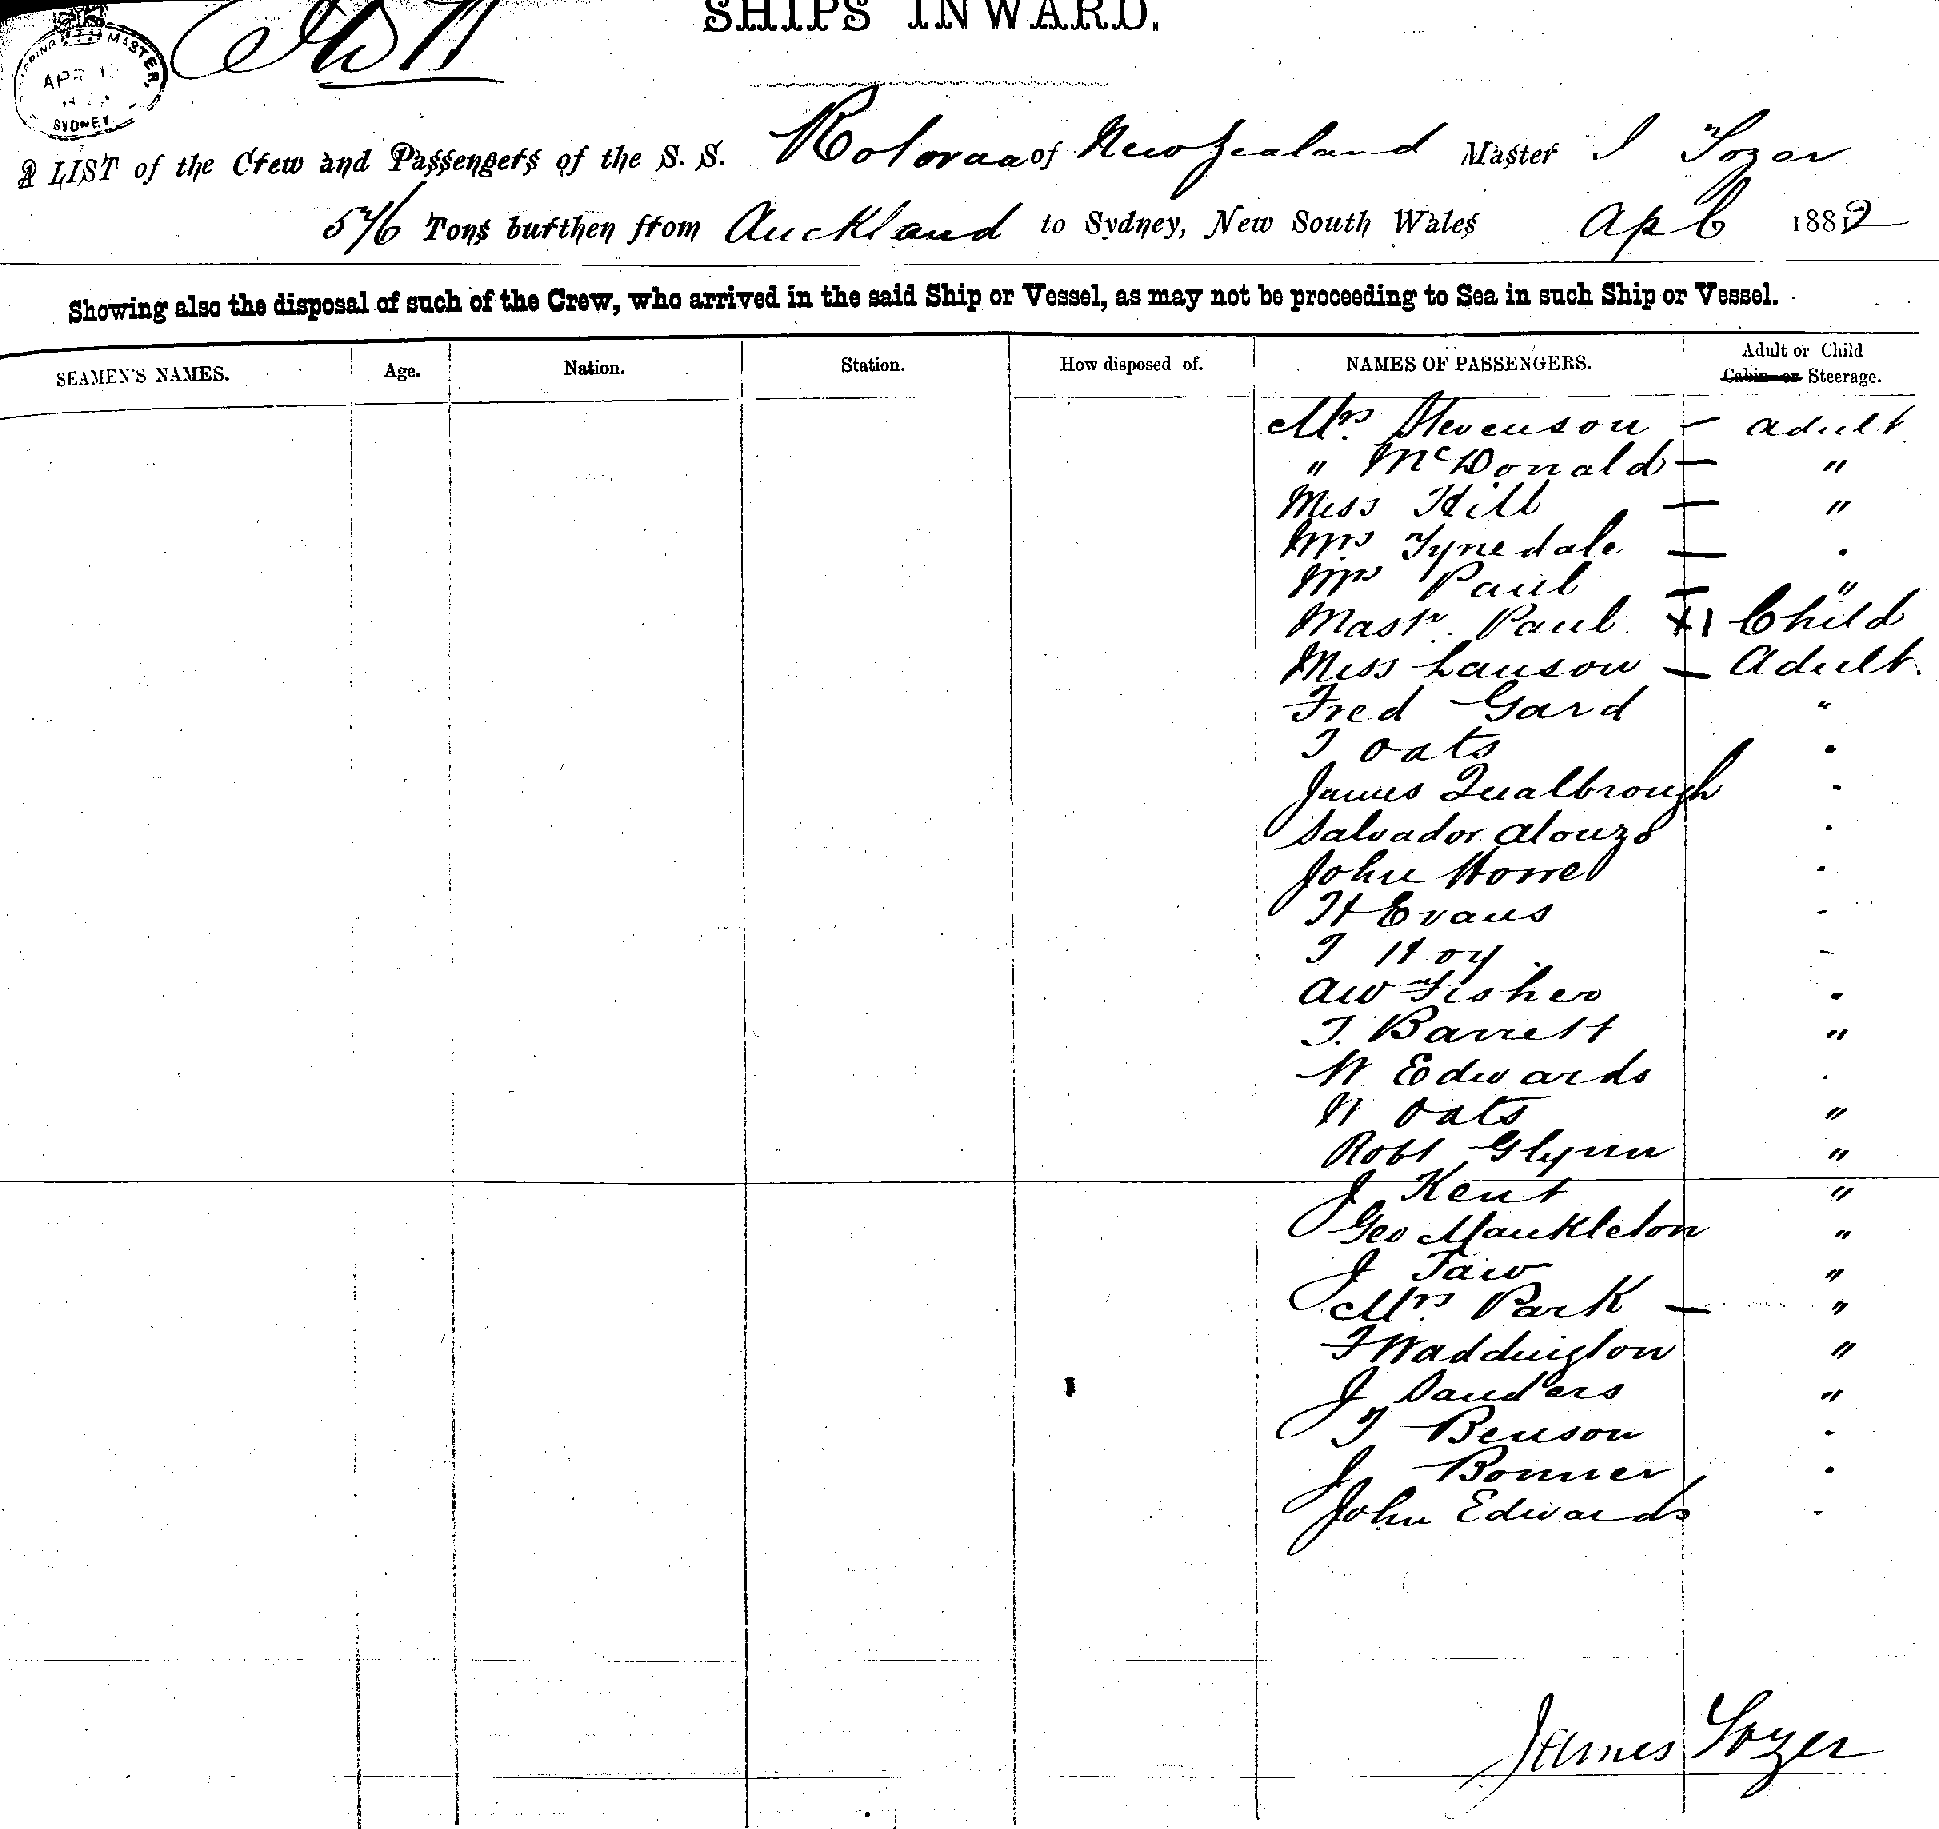 SHIPS INWARD.
SHIPPING MASTER
APR 1
SYDNEY
A LIST of the Crew and Passengers of the S. S. Rotoraa of New Zealand Master J Tozer
576 Tons burthen from Auckland to Sydney, New South Wales Ap 6 1882
Showing also the disposal of such of the Crew, who arrived in the said Ship or Vessel, as may not be proceeding to Sea in such Ship or Vessel.
SEAMEN'S NAMES. Age. Nation. Station. How disposed of. NAMES OF PASSENGERS. Adult or Child
Cabin or Steerage.
Mrs. Stevenson — adult
" McDonald — "
Miss Hill — "
Mrs Tynedale — "
Mrs Paul — "
Mastr. Paul X1 Child
Miss Lauson — Adult.
Fred Gard "
T Oats "
James Qualbrough "
Salvador Alonzo "
John Horre "
H Evans "
T Hoy "
AW Fisher "
T. Barrett "
W Edwards "
W Oats "
Robt Glynn "
J Kent "
Geo Mankleton "
J Taw "
Mrs. Park — "
F Waddington "
J Sanders "
T Benson "
J Bonner "
John Edwards "
James Tozer